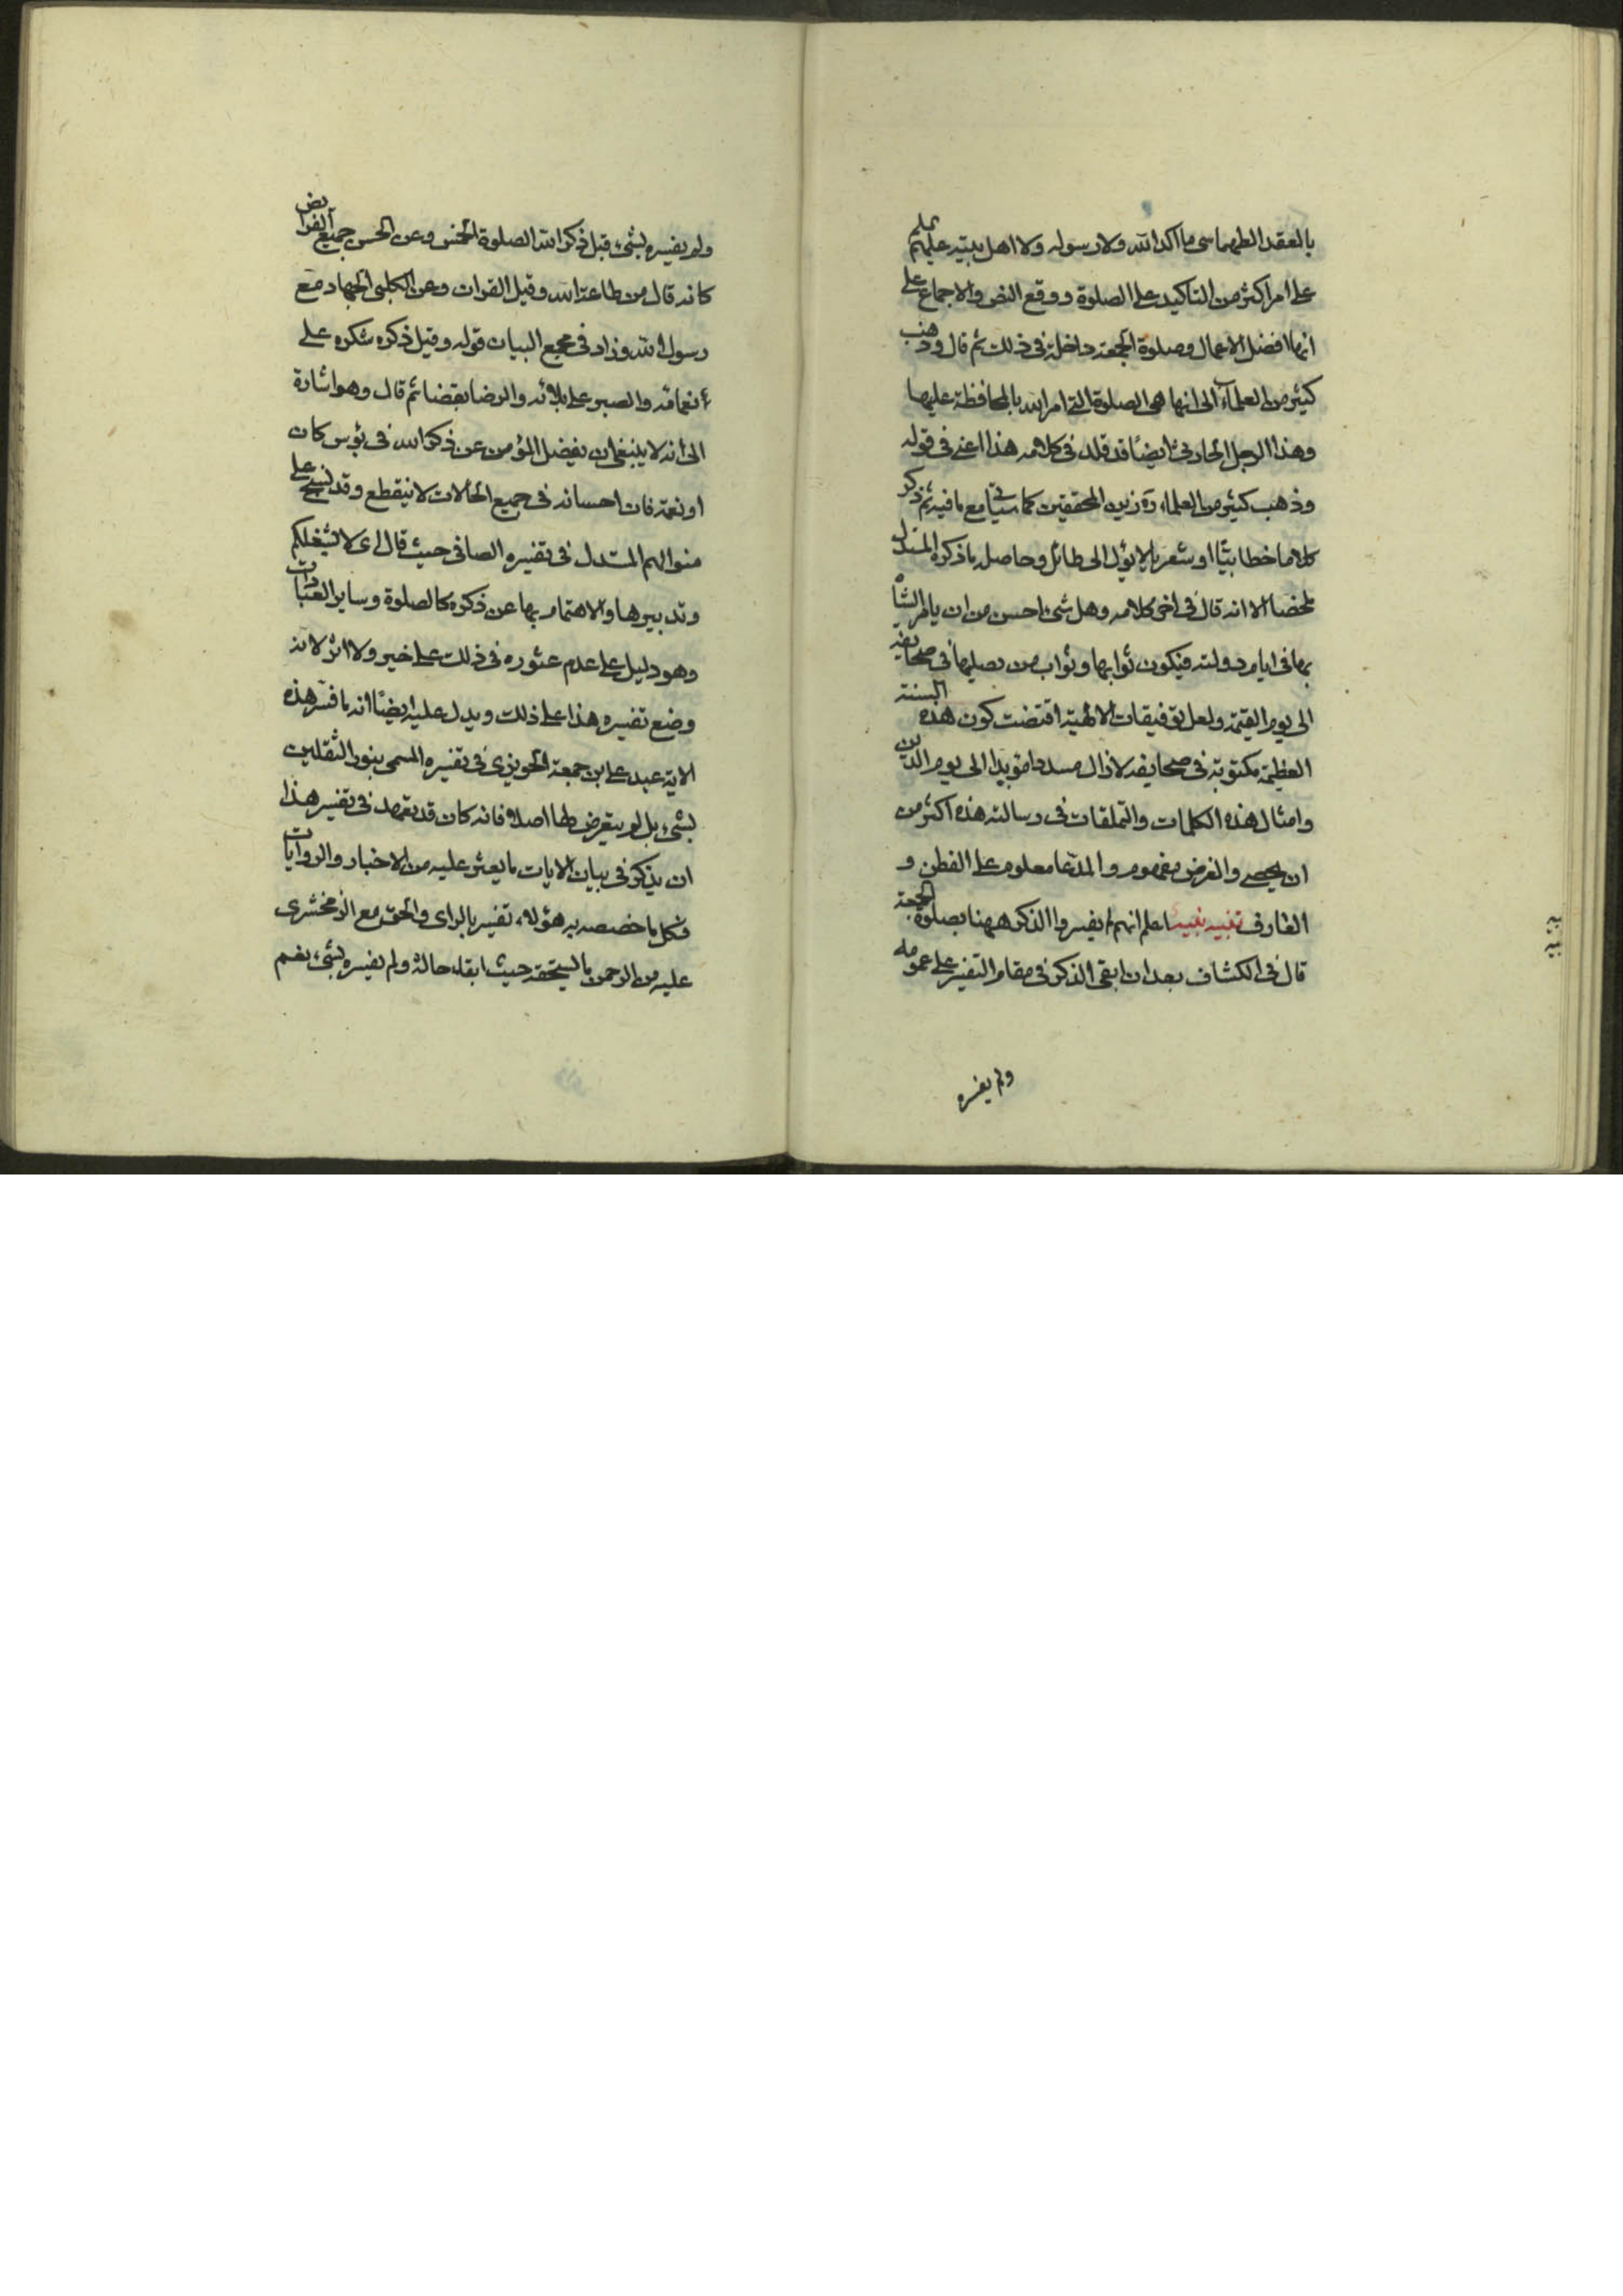 بالعقد الطهماسى ما اكد الله ولا رسوله ولا اهل بيته عليهم
على امر اكثر من التاكيد على الصلوة ووقع النص والاجماع على
انها افضل الاعمال وصلوة الجمعة داخلة فى ذلك ثم قال وذهب
كثير من العلماء الى انها هى الصلوة التى امر الله بالمحافظة عليها
وهذا الرجل الحارثى ايضا قد قلد فى كلامه هذا اعنى فى قوله
وذهب كثير من العلماء زين المحققين كما سياتى مع ما فيه ثم ذكر
كلاما خطابيا او شعريا لا يؤل الى طائل وحاصله ما ذكره المستدل
ملخصا الا انه قال فى اخر كلامه وهل شىء احسن من ان يامر الشاه
بها فى ايام دولته فيكون ثوابها وثواب من يصليها فى صحايفه
الى يوم القيمة ولعل توفيقات الالهية اقتضت كون هذه السنة
العظيمة مكتوبة فى صحايفه لا زال مسددا مؤيدا الى يوم الدين
وامثال هذه الكلمات والتملقات فى رسالته هذه اكثر من
ان يحصى والغرض مفهوم والمدعا معلوم على الفطن و
العارف تنبيه نبيه اعلم انهم لم يفسروا الذكر ههنا بصلوة الجمعة
قال فى الكشاف بعد ان ابقى الذكر فى مقام التفسير على عمومه
ولم يفسره
ولم يفسره بشىء قيل ذكر الله الصلوة الخمس وعن الحسن جميع الفرايض
كانه قال من طاعة الله وقيل القران وعن الكلبى الجهاد مع
رسول الله وزاد فى مجمع البيان قوله وقيل ذكره شكره على
نعمائه والصبر على بلائه والرضا بقضائه ثم قال وهو اشارة
الى انه لا ينبغى ان يغفل المؤمن عن ذكر الله فى بؤس كان
او نعمة فان احسانه فى جميع الحالات لا ينقطع وقد نسج على
منوالهم المستدل فى تفسيره الصافى حيث قال اى لا يشغلكم
وتدبيرها والاهتمام بها عن ذكره كالصلوة وساير العبادات
وهو دليل على عدم عثوره فى ذلك على خبر ولا اثر لانه
وضع تفسيره هذا على ذلك ويدل عليه ايضا انه ما فسر هذه
الاية عبد على بن جمعة الحويزى فى تفسيره المسمى بنور الثقلين
بشىء بل لم يتعرض لها اصلا فانه كان قد تعهد فى تفسير هذا
ان يذكر فى بيان الايات ما يعثر عليه من الاخبار والروايات
فكل ما خصصه به هؤلاء تفسير بالراى والحق مع الزمخشرى
عليه من الرحمن ما يستحقه حيث ابقاه حاله ولم يفسره بشىء نعم